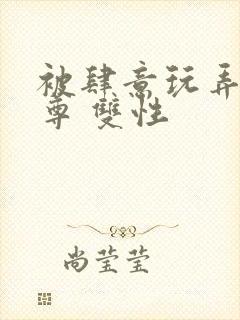 被肆意玩弄
尊 雙性
尚莹莹